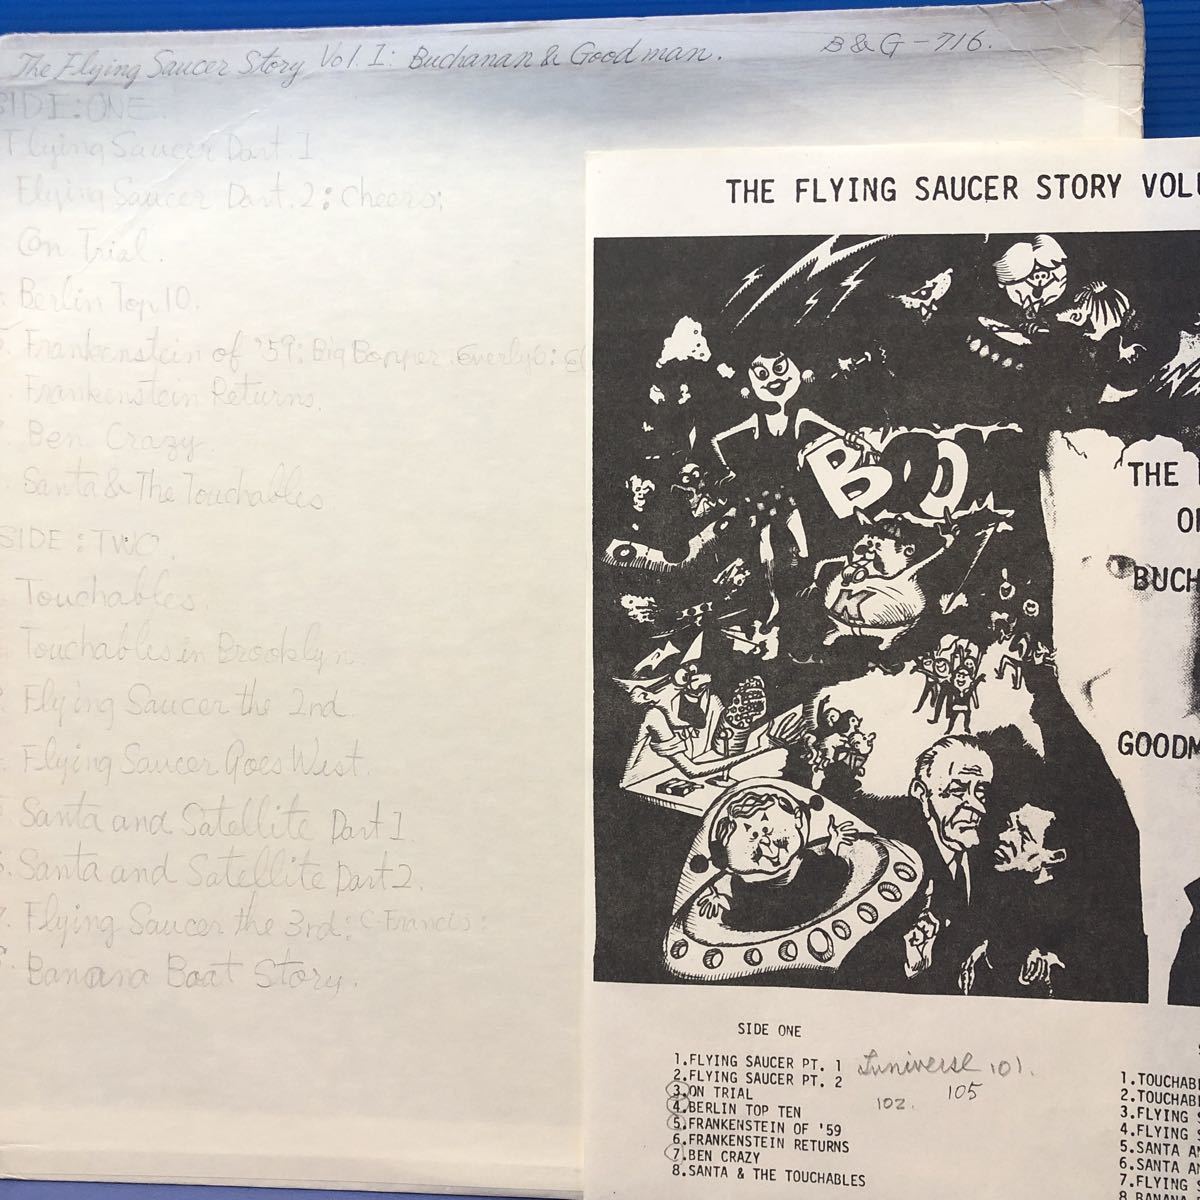 The Flying Saucer Story Vol. I: Buchanan & Goodman. B&G-716.
SIDE: ONE.
Flying Saucer Part. 1
Flying Saucer Part. 2: Cheers:
On Trial.
Berlin Top 10.
Frankenstein of '59: Big Bopper. Everly B:
Frankinstein Returns.
Ben Crazy.
Santa & The Touchables
SIDE: TWO.
Touchables.
Touchables in Brooklyn.
Flying Saucer the 2nd
Flying Saucer Goes West.
Santa and Satellite Part 1
Santa and Satellite Part 2.
Flying Saucer the 3rd: C-Francis:
Banana Boat Story.
THE FLYING SAUCER STORY VOLU
BOO
K
THE
BUCH
GOODM
SIDE ONE
1.FLYING SAUCER PT. 1 Luniverse 101.
2.FLYING SAUCER PT. 2 105
3.ON TRIAL 102.
4.BERLIN TOP TEN
5.FRANKENSTEIN OF '59
6.FRANKENSTEIN RETURNS
7.BEN CRAZY
8.SANTA & THE TOUCHABLES
1.TOUCHABL
2.TOUCHABL
3.FLYING S
4.FLYING S
5.SANTA AN
6.SANTA AN
7.FLYING
8.BANANA